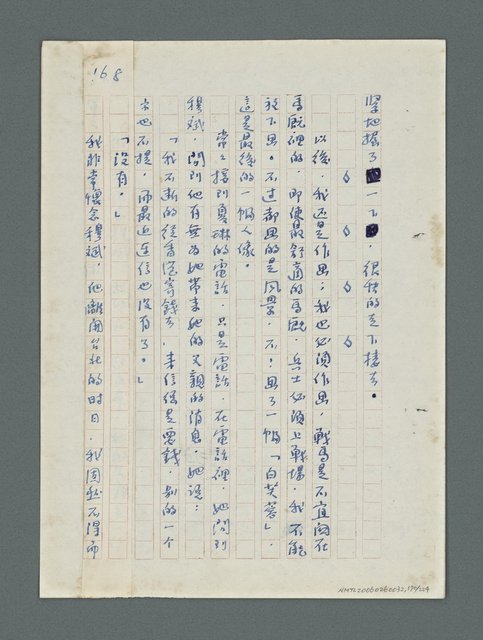 168
堅地握了一下，很快的走下樓去。
◇ ◇ ◇ ◇
以後，我还是作画，我也必須作画，戰馬是不宜閒在
馬厩裡的，即使最舒適的馬厩，兵士必須上戰場，我不能
放下畫。不过都画的是風景，不！画了一幅「白芙蓉」，
這是最後的一幅人像。
常々接到夏琳的電話，只是電話，在電話裡，她問到
穆斌，問到他有無为她帶来她的父親的消息，她說：
「我不断的從香港寄錢去，来信總是要錢，别的一个
字也不提，而最近連信也沒有了。」
「沒有。」
我非常懷念穆斌，他離開台北的时日，我固然不得而
NMTL20060260032,179/224